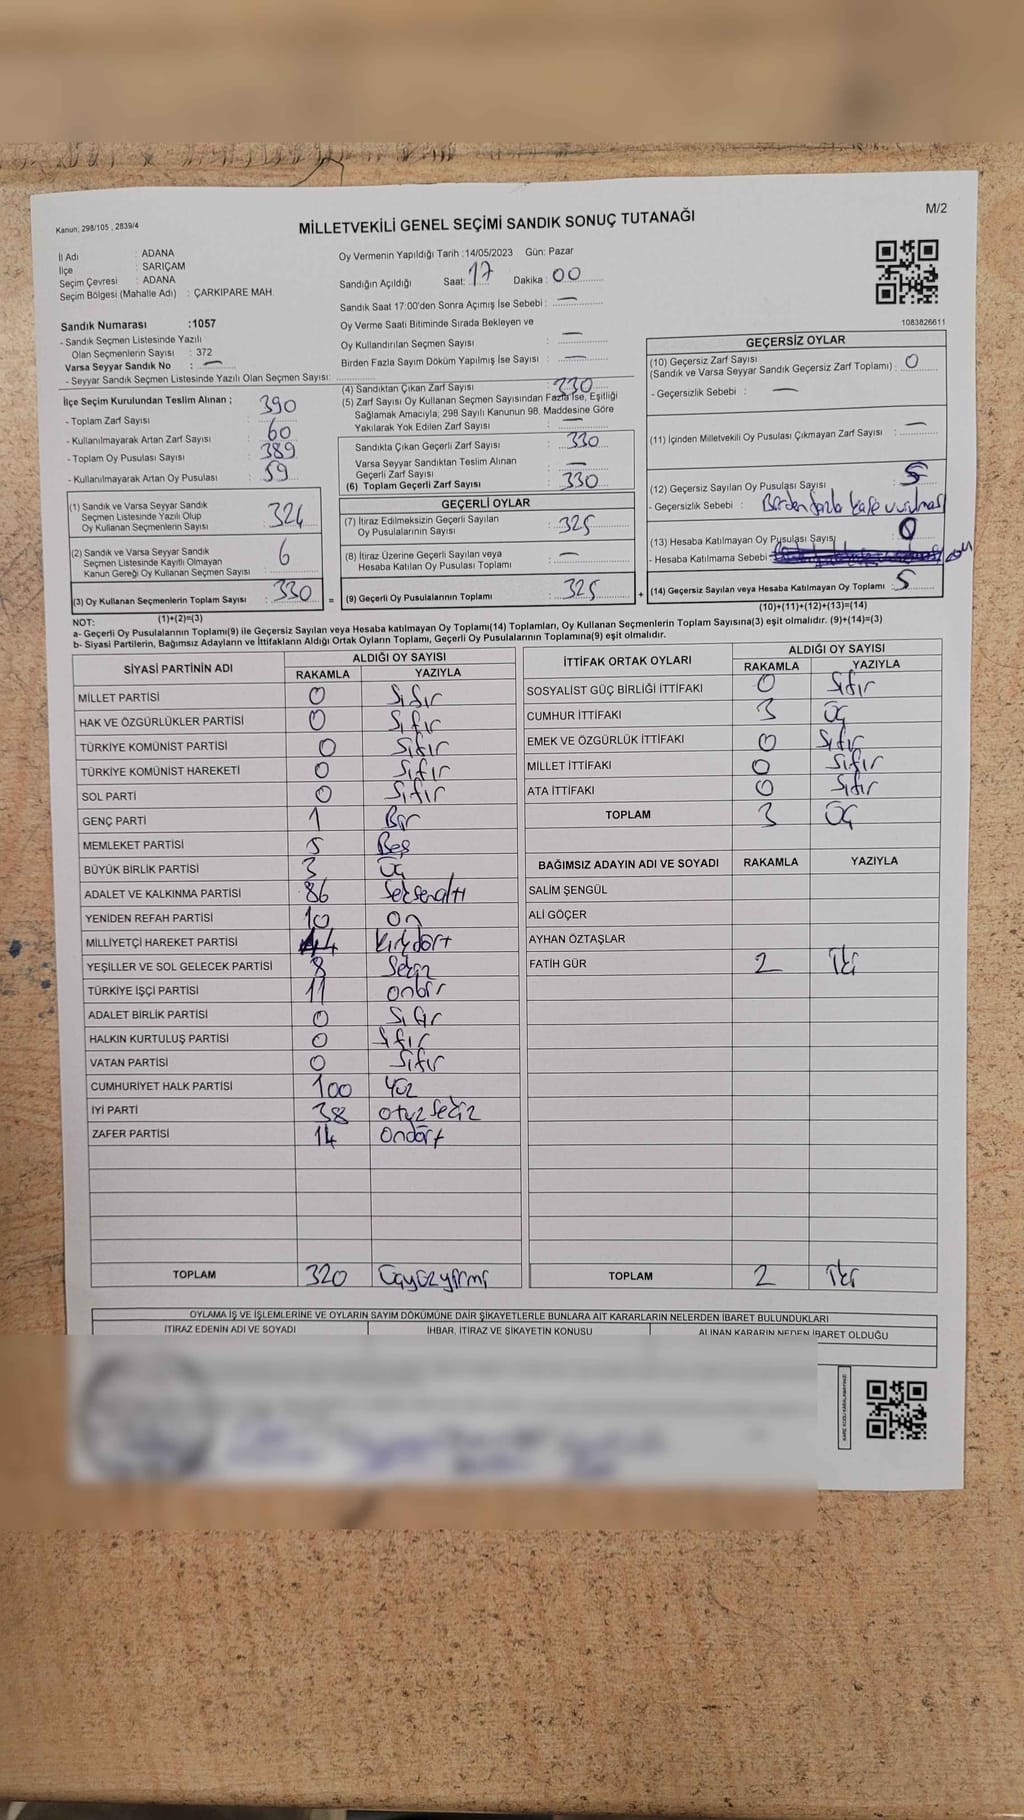 Kanun, 298/105 , 2839/4
MİLLETVEKİLİ GENEL SEÇİMİ SANDIK SONUÇ TUTANAĞI
M/2
İl Adı : ADANA
İlçe : SARIÇAM
Seçim Çevresi : ADANA
Seçim Bölgesi (Mahalle Adı) : ÇARKIPARE MAH.
Sandık Numarası :1057
- Sandık Seçmen Listesinde Yazılı
Olan Seçmenlerin Sayısı : 372
Varsa Seyyar Sandık No : —
- Seyyar Sandık Seçmen Listesinde Yazılı Olan Seçmen Sayısı:
Oy Vermenin Yapıldığı Tarih :14/05/2023 Gün: Pazar
Sandığın Açıldığı Saat: 17 Dakika : 00
Sandık Saat 17:00'den Sonra Açımış İse Sebebi : —
Oy Verme Saati Bitiminde Sırada Bekleyen ve
Oy Kullandırılan Seçmen Sayısı —
Birden Fazla Sayım Döküm Yapılmış İse Sayısı : —
1083826611
İlçe Seçim Kurulundan Teslim Alınan ;
- Toplam Zarf Sayısı 390
- Kullanılmayarak Artan Zarf Sayısı 60
- Toplam Oy Pusulası Sayısı 389
- Kullanılmayarak Artan Oy Pusulası : 59
(1) Sandık ve Varsa Seyyar Sandık
Seçmen Listesinde Yazılı Olup
Oy Kullanan Seçmenlerin Sayısı : 324
(2) Sandık ve Varsa Seyyar Sandık
Seçmen Listesinde Kayıtlı Olmayan
Kanun Gereği Oy Kullanan Seçmen Sayısı : 6
(3) Oy Kullanan Seçmenlerin Toplam Sayısı : 330
(1)+(2)=(3)
(4) Sandıktan Çıkan Zarf Sayısı : 330
(5) Zarf Sayısı Oy Kullanan Seçmen Sayısından Fazla İse, Eşitliği
Sağlamak Amacıyla, 298 Sayılı Kanunun 98. Maddesine Göre
Yakılarak Yok Edilen Zarf Sayısı : —
Sandıkta Çıkan Geçerli Zarf Sayısı : 330
Varsa Seyyar Sandıktan Teslim Alınan
Geçerli Zarf Sayısı : —
(6) Toplam Geçerli Zarf Sayısı : 330
GEÇERLİ OYLAR
(7) İtiraz Edilmeksizin Geçerli Sayılan
Oy Pusulalarının Sayısı : 325
(8) İtiraz Üzerine Geçerli Sayılan veya
Hesaba Katılan Oy Pusulası Toplamı : —
= (9) Geçerli Oy Pusulalarının Toplamı : 325 +
GEÇERSİZ OYLAR
(10) Geçersiz Zarf Sayısı
(Sandık ve Varsa Seyyar Sandık Geçersiz Zarf Toplamı) : 0
- Geçersizlik Sebebi : —
(11) İçinden Milletvekili Oy Pusulası Çıkmayan Zarf Sayısı : —
(12) Geçersiz Sayılan Oy Pusulası Sayısı : 5
- Geçersizlik Sebebi : Birden fazla kaşe vurulması
(13) Hesaba Katılmayan Oy Pusulası Sayısı : 0
- Hesaba Katılmama Sebebi :
(14) Geçersiz Sayılan veya Hesaba Katılmayan Oy Toplamı : 5
(10)+(11)+(12)+(13)=(14)
NOT:
a- Geçerli Oy Pusulalarının Toplamı(9) ile Geçersiz Sayılan veya Hesaba katılmayan Oy Toplamı(14) Toplamları, Oy Kullanan Seçmenlerin Toplam Sayısına(3) eşit olmalıdır. (9)+(14)=(3)
b- Siyasi Partilerin, Bağımsız Adayların ve İttifakların Aldığı Ortak Oyların Toplamı, Geçerli Oy Pusulalarının Toplamına(9) eşit olmalıdır.
SİYASİ PARTİNİN ADI ALDIĞI OY SAYISI
RAKAMLA YAZIYLA
MİLLET PARTİSİ 0 Sıfır
HAK VE ÖZGÜRLÜKLER PARTİSİ 0 Sıfır
TÜRKİYE KOMÜNİST PARTİSİ 0 Sıfır
TÜRKİYE KOMÜNİST HAREKETİ 0 Sıfır
SOL PARTİ 0 Sıfır
GENÇ PARTİ 1 Bir
MEMLEKET PARTİSİ 5 Beş
BÜYÜK BİRLİK PARTİSİ 3 Üç
ADALET VE KALKINMA PARTİSİ 86 Seksenaltı
YENİDEN REFAH PARTİSİ 10 On
MİLLİYETÇİ HAREKET PARTİSİ 44 Kırkdört
YEŞİLLER VE SOL GELECEK PARTİSİ 8 Sekiz
TÜRKİYE İŞÇİ PARTİSİ 11 onbir
ADALET BİRLİK PARTİSİ 0 Sıfır
HALKIN KURTULUŞ PARTİSİ 0 Sıfır
VATAN PARTİSİ 0 Sıfır
CUMHURİYET HALK PARTİSİ 100 Yüz
İYİ PARTİ 38 otuzsekiz
ZAFER PARTİSİ 14 Ondört
TOPLAM 320 Üçyüzyirmi
İTTİFAK ORTAK OYLARI ALDIĞI OY SAYISI
RAKAMLA YAZIYLA
SOSYALİST GÜÇ BİRLİĞİ İTTİFAKI 0 Sıfır
CUMHUR İTTİFAKI 3 Üç
EMEK VE ÖZGÜRLÜK İTTİFAKI 0 Sıfır
MİLLET İTTİFAKI 0 Sıfır
ATA İTTİFAKI 0 Sıfır
TOPLAM 3 Üç
BAĞIMSIZ ADAYIN ADI VE SOYADI RAKAMLA YAZIYLA
SALİM ŞENGÜL
ALİ GÖÇER
AYHAN ÖZTAŞLAR
FATİH GÜR 2 İki
TOPLAM 2 İki
OYLAMA İŞ VE İŞLEMLERİNE VE OYLARIN SAYIM DÖKÜMÜNE DAİR ŞİKAYETLERLE BUNLARA AİT KARARLARIN NELERDEN İBARET BULUNDUKLARI
İTİRAZ EDENİN ADI VE SOYADI İHBAR, İTİRAZ VE ŞİKAYETİN KONUSU ALINAN KARARIN NEDEN İBARET OLDUĞU